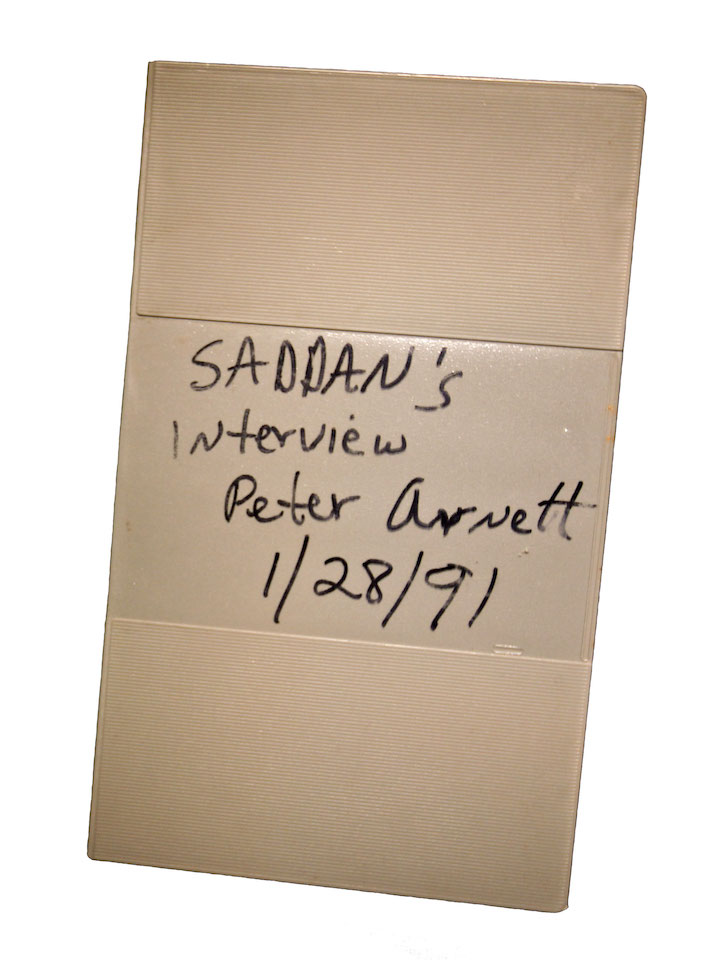 SADDAN's
Interview
Peter Arnett
1/28/91